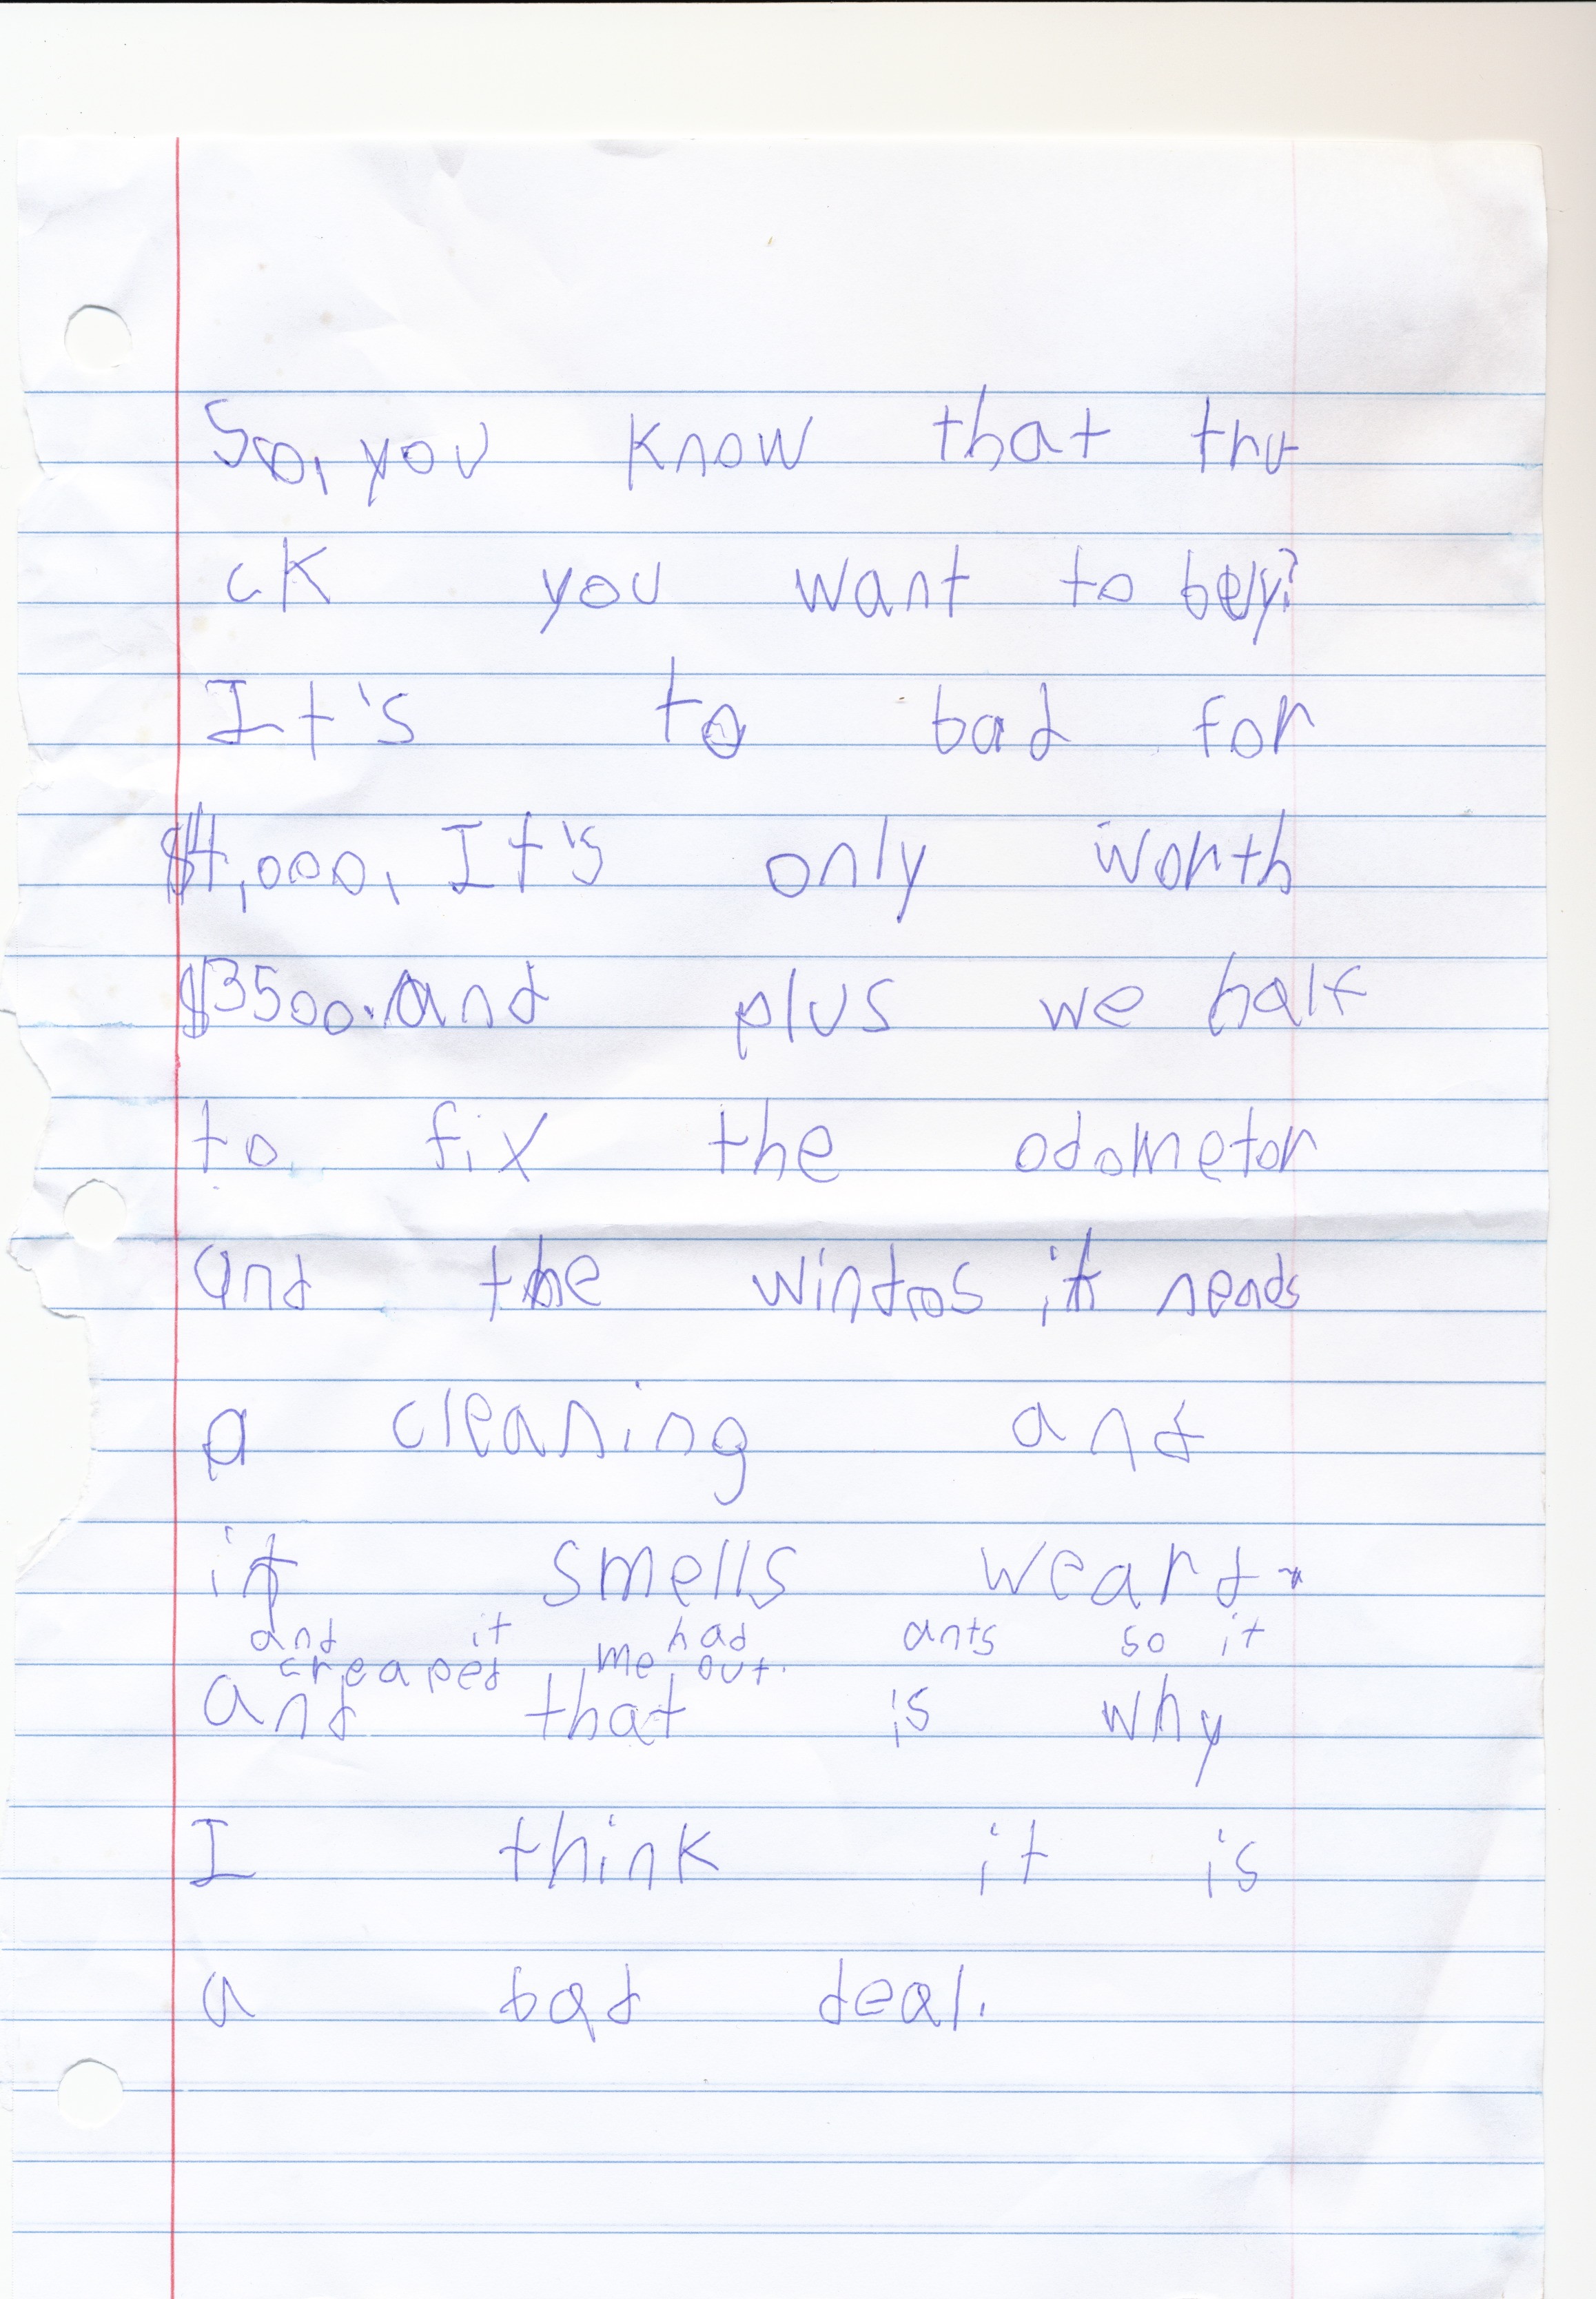 So, you know that tru
ck you want to bey?
It's to bad for
$4,000, It's only worth
$3500. and plus we half
to fix the odometor
and the windos it neads
a cleaning and
it smells weard.
and it had ants so it
creaped me out.
and that is why
I think it is
a bad deal.